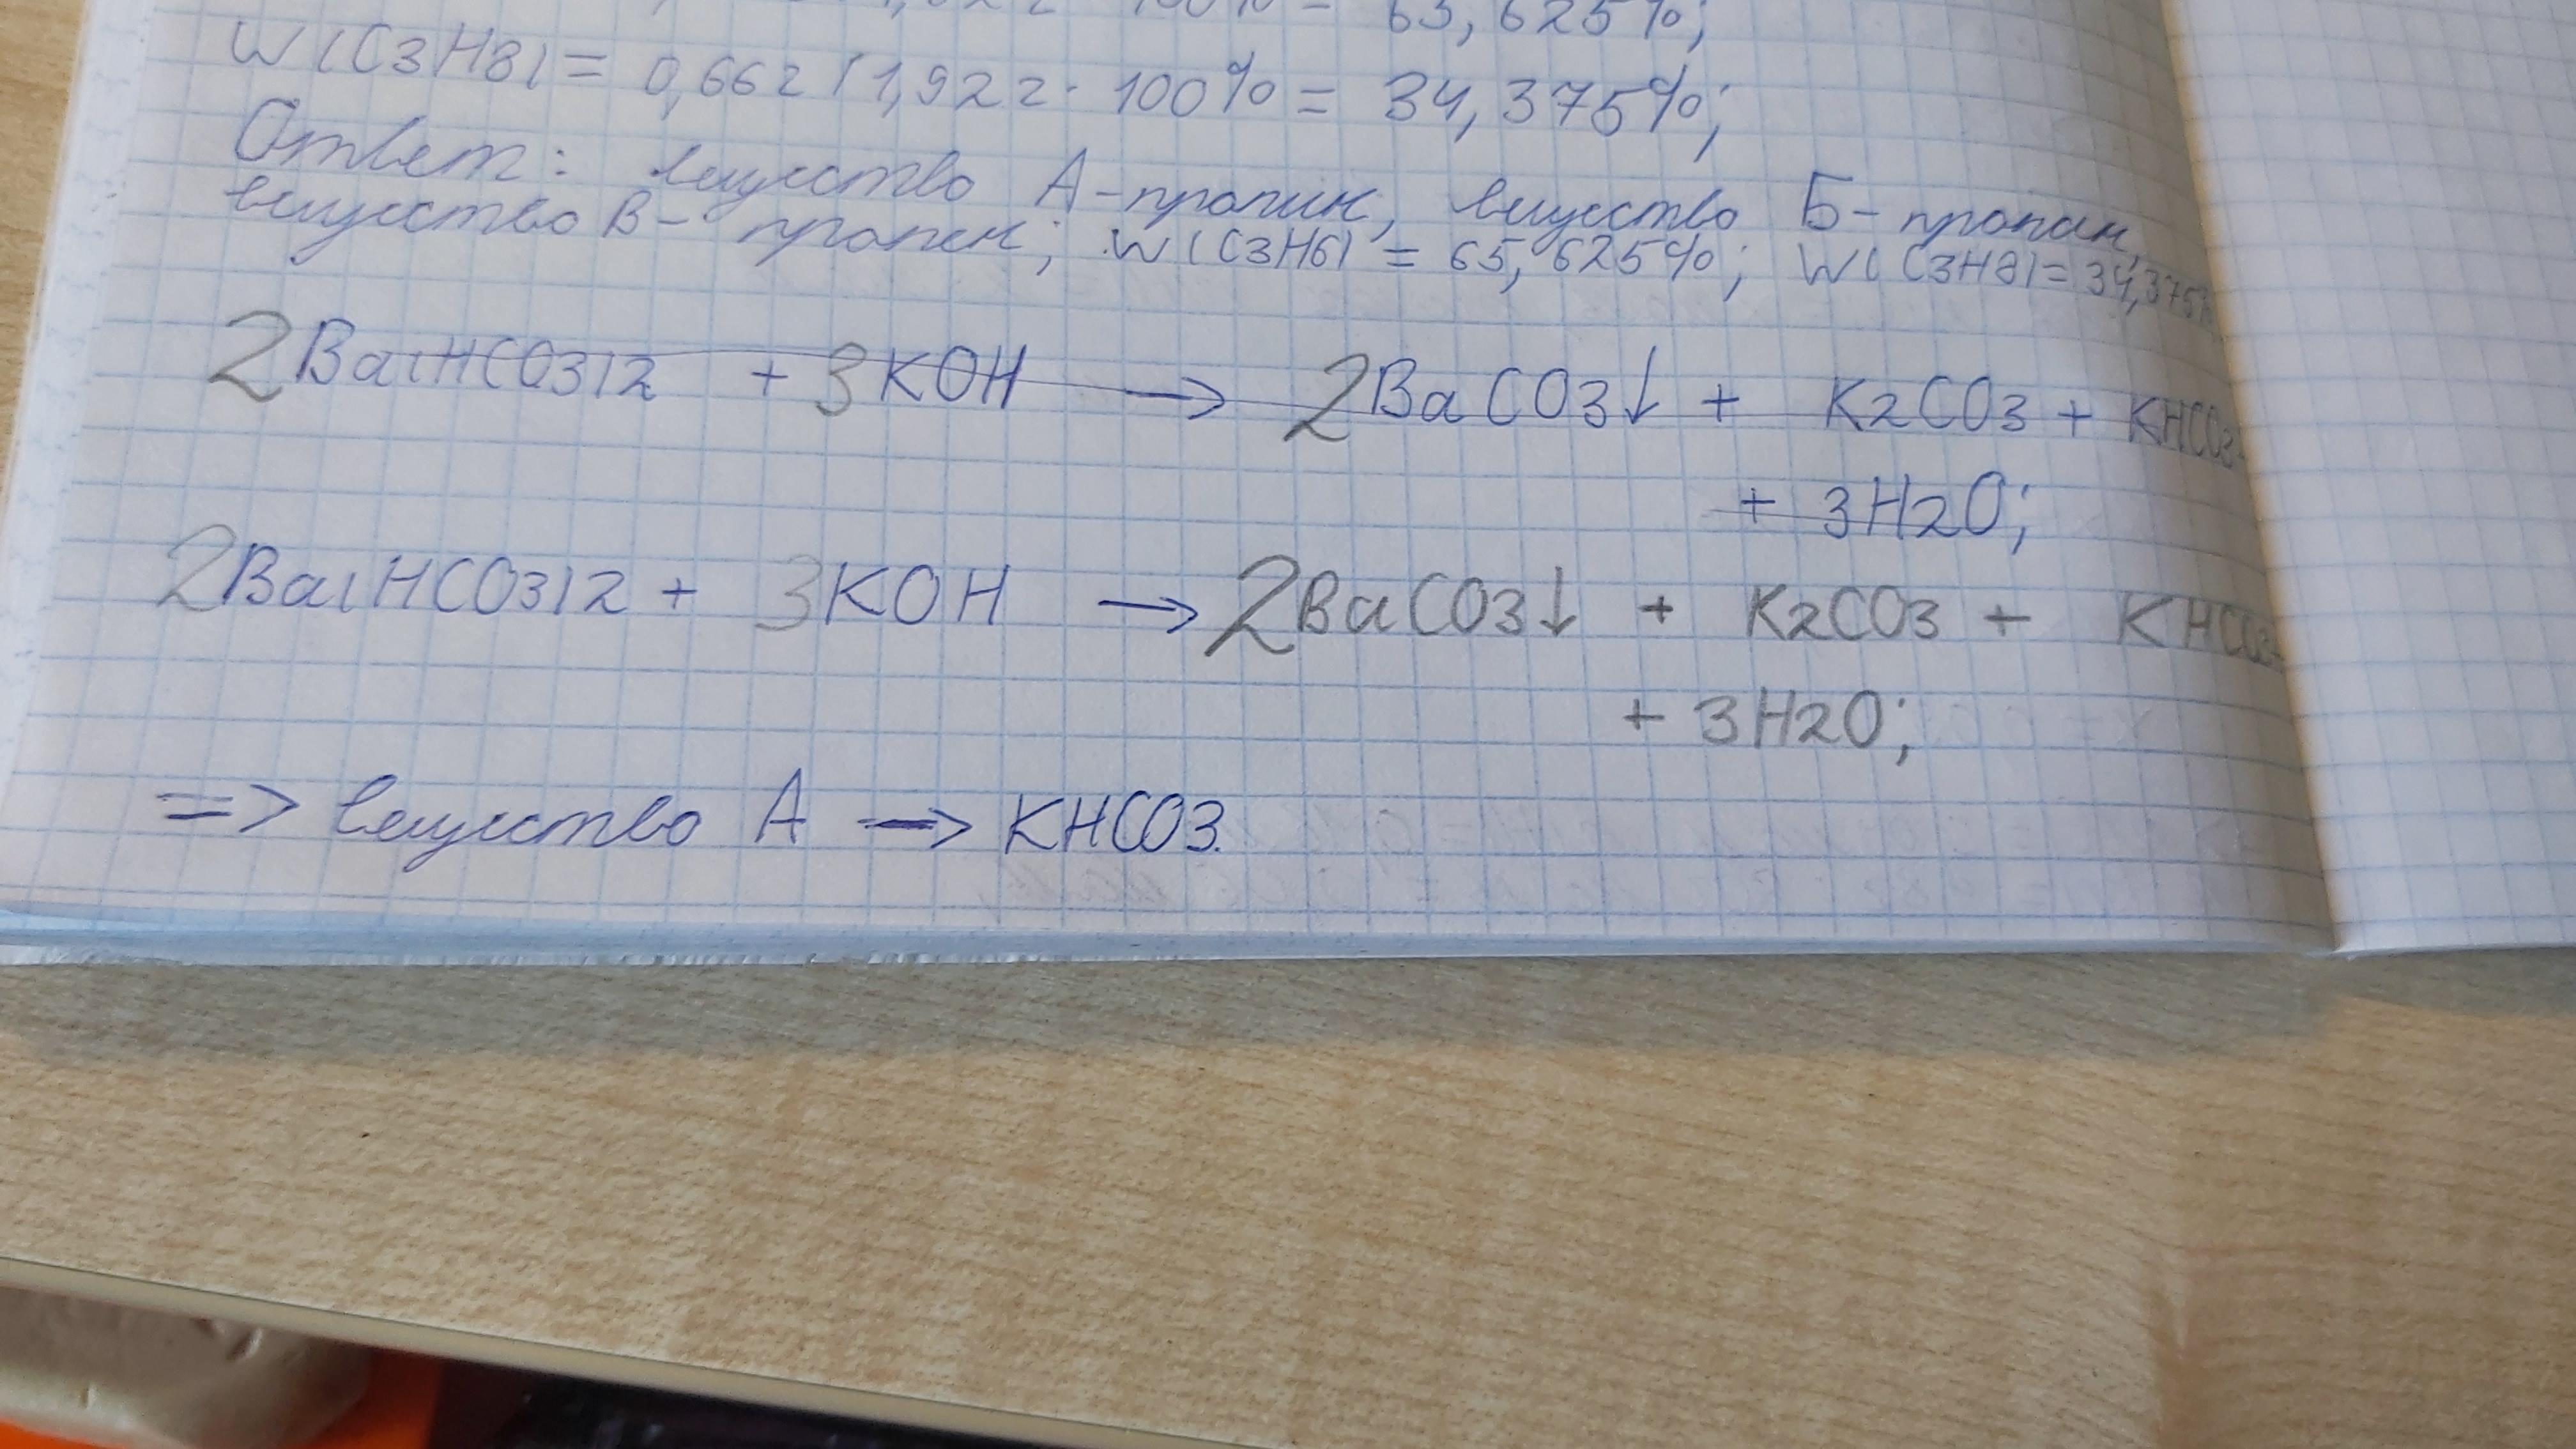 65,625%;
W(C3H8)= 0,66г/1,92г·100%= 34,375%;
Ответ: вещество А-пропин, вещество Б-пропан,
вещество В- пропен; W(C3H6) = 65,625%; W(C3H8)= 34,375%
2Ba(HCO3)2 + 3KOH → 2BaCO3↓ + K2CO3 + KHCO3+
+ 3H2O;
2Ba(HCO3)2 + 3KOH → 2BaCO3↓ + K2CO3 + KHCO3+
+ 3H2O;
=> вещество А → KHCO3.